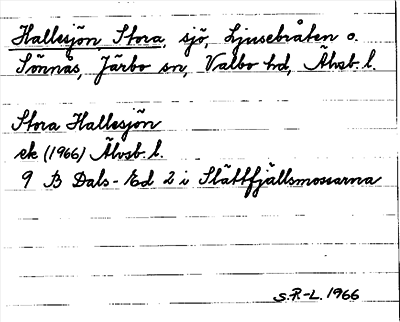 Hallesjön, Stora, sjö, Ljusebråten o.
Sörnäs, Järbo sn, Valbo hd, Älvsb. l.
Stora Hallesjön
ek (1966) Älvsb. l.
9 B Dals-Ed 2 i Slättfjällsmossarna
S.R-L. 1966